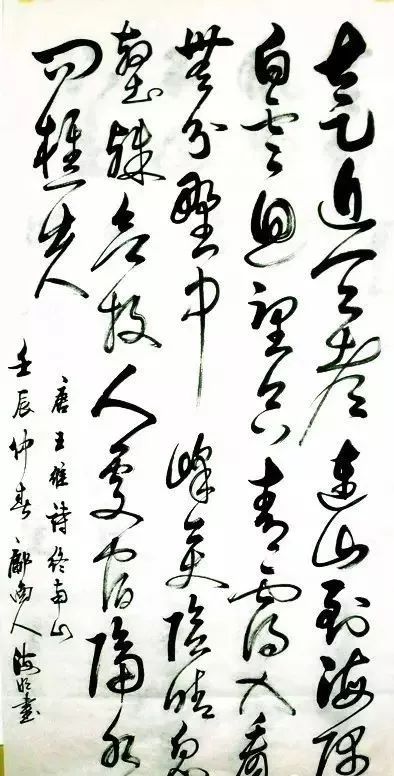 太乙近天都連山到海隅
白雲迴望合青靄入看
無分野中峰變陰晴眾
壑殊欲投人處宿隔水
問樵夫
唐王維詩終南山
壬辰仲春